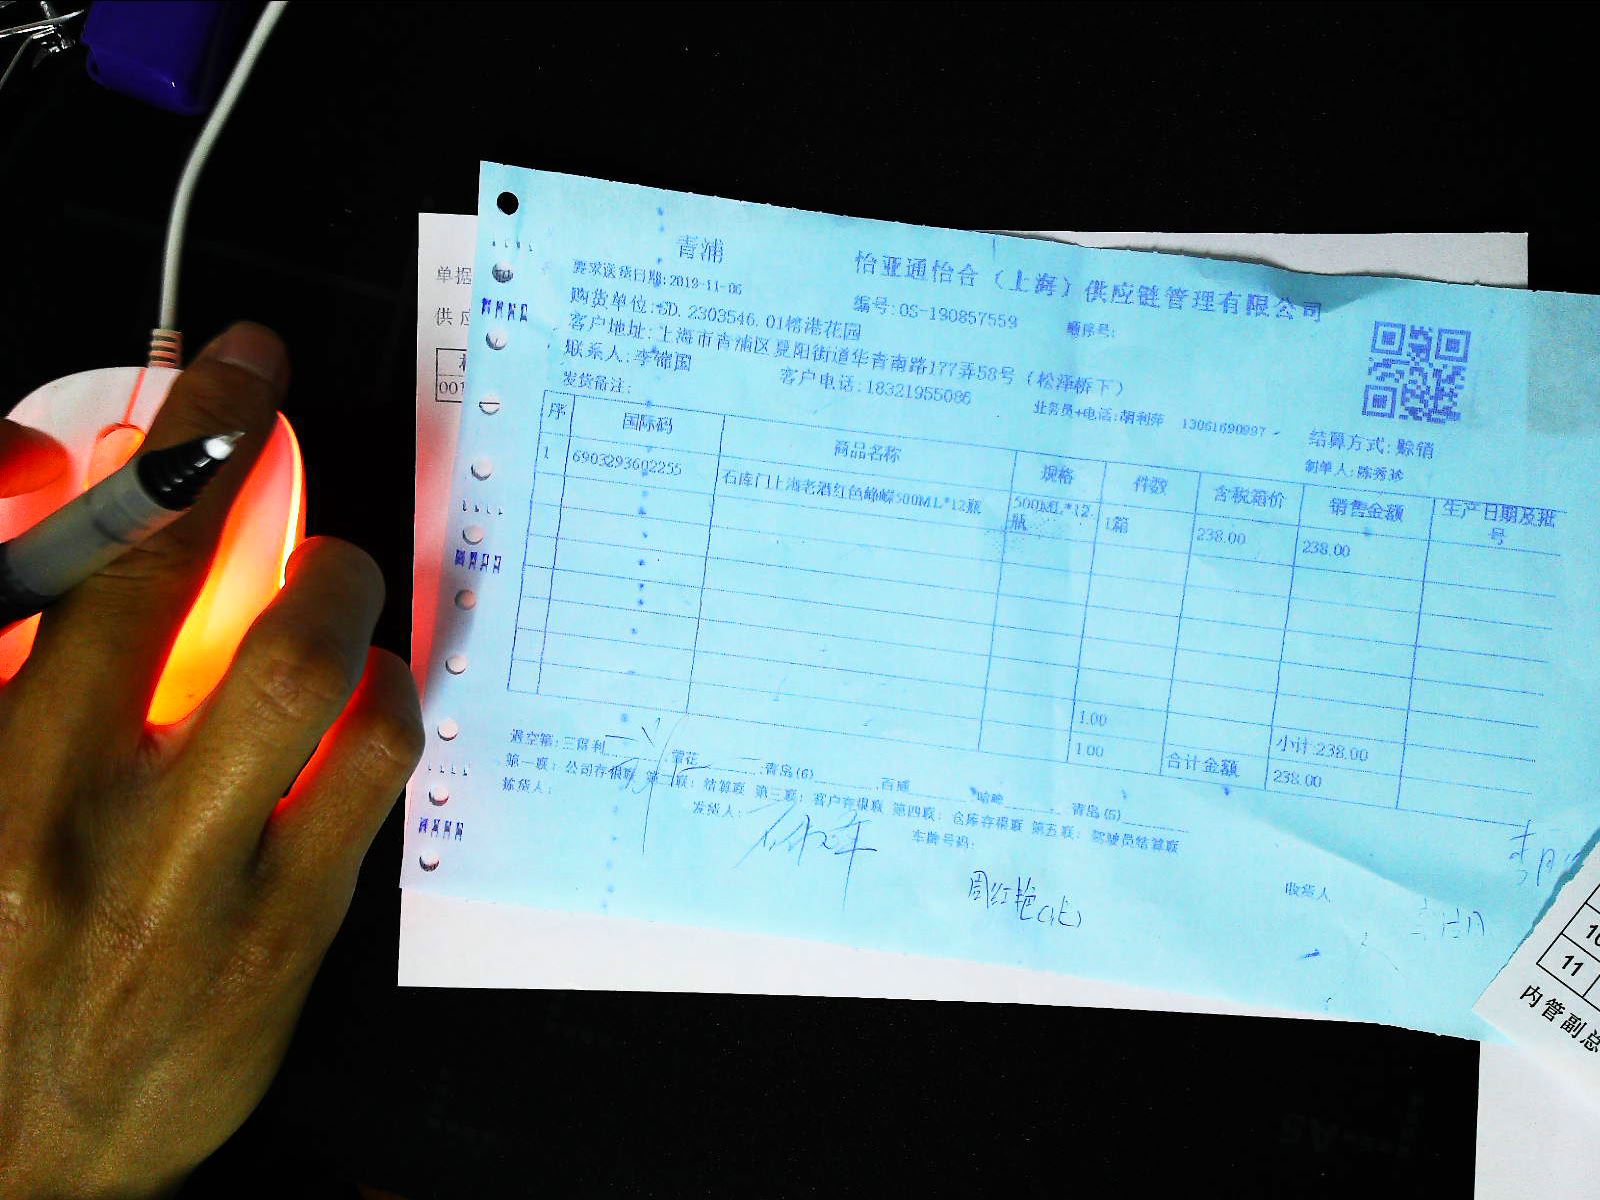 青浦
怡亚通怡合（上海）供应链管理有限公司
要求送货日期:2019-11-06
编号:OS-190857559
顺序号:
购货单位:SD.2303546.01榕港花园
客户地址:上海市青浦区夏阳街道华青南路177弄58号（松泽桥下）
联系人:李锦国
客户电话:18321955086
业务员+电话:胡利萍 13061690997
结算方式:赊销
发货备注:
制单人:陈秀珍
序 国际码 商品名称 规格 件数 含税箱价 销售金额 生产日期及批号
1 6903293602255 石库门上海老酒红色峥嵘500ML*12瓶 500ML*12瓶 1箱 238.00 238.00
1.00 小计:238.00
1.00 合计金额 238.00
退空箱:三得利 雪花 青岛(6) 百威 哈啤 青岛(6)
第一联: 公司存根联 第二联: 结算联 第三联: 客户存根联 第四联: 仓库存根联 第五联: 驾驶员结算联
拣货人:
发货人:
车牌号码:
收货人
周红艳
单据
供应
001
10
11
内管副总